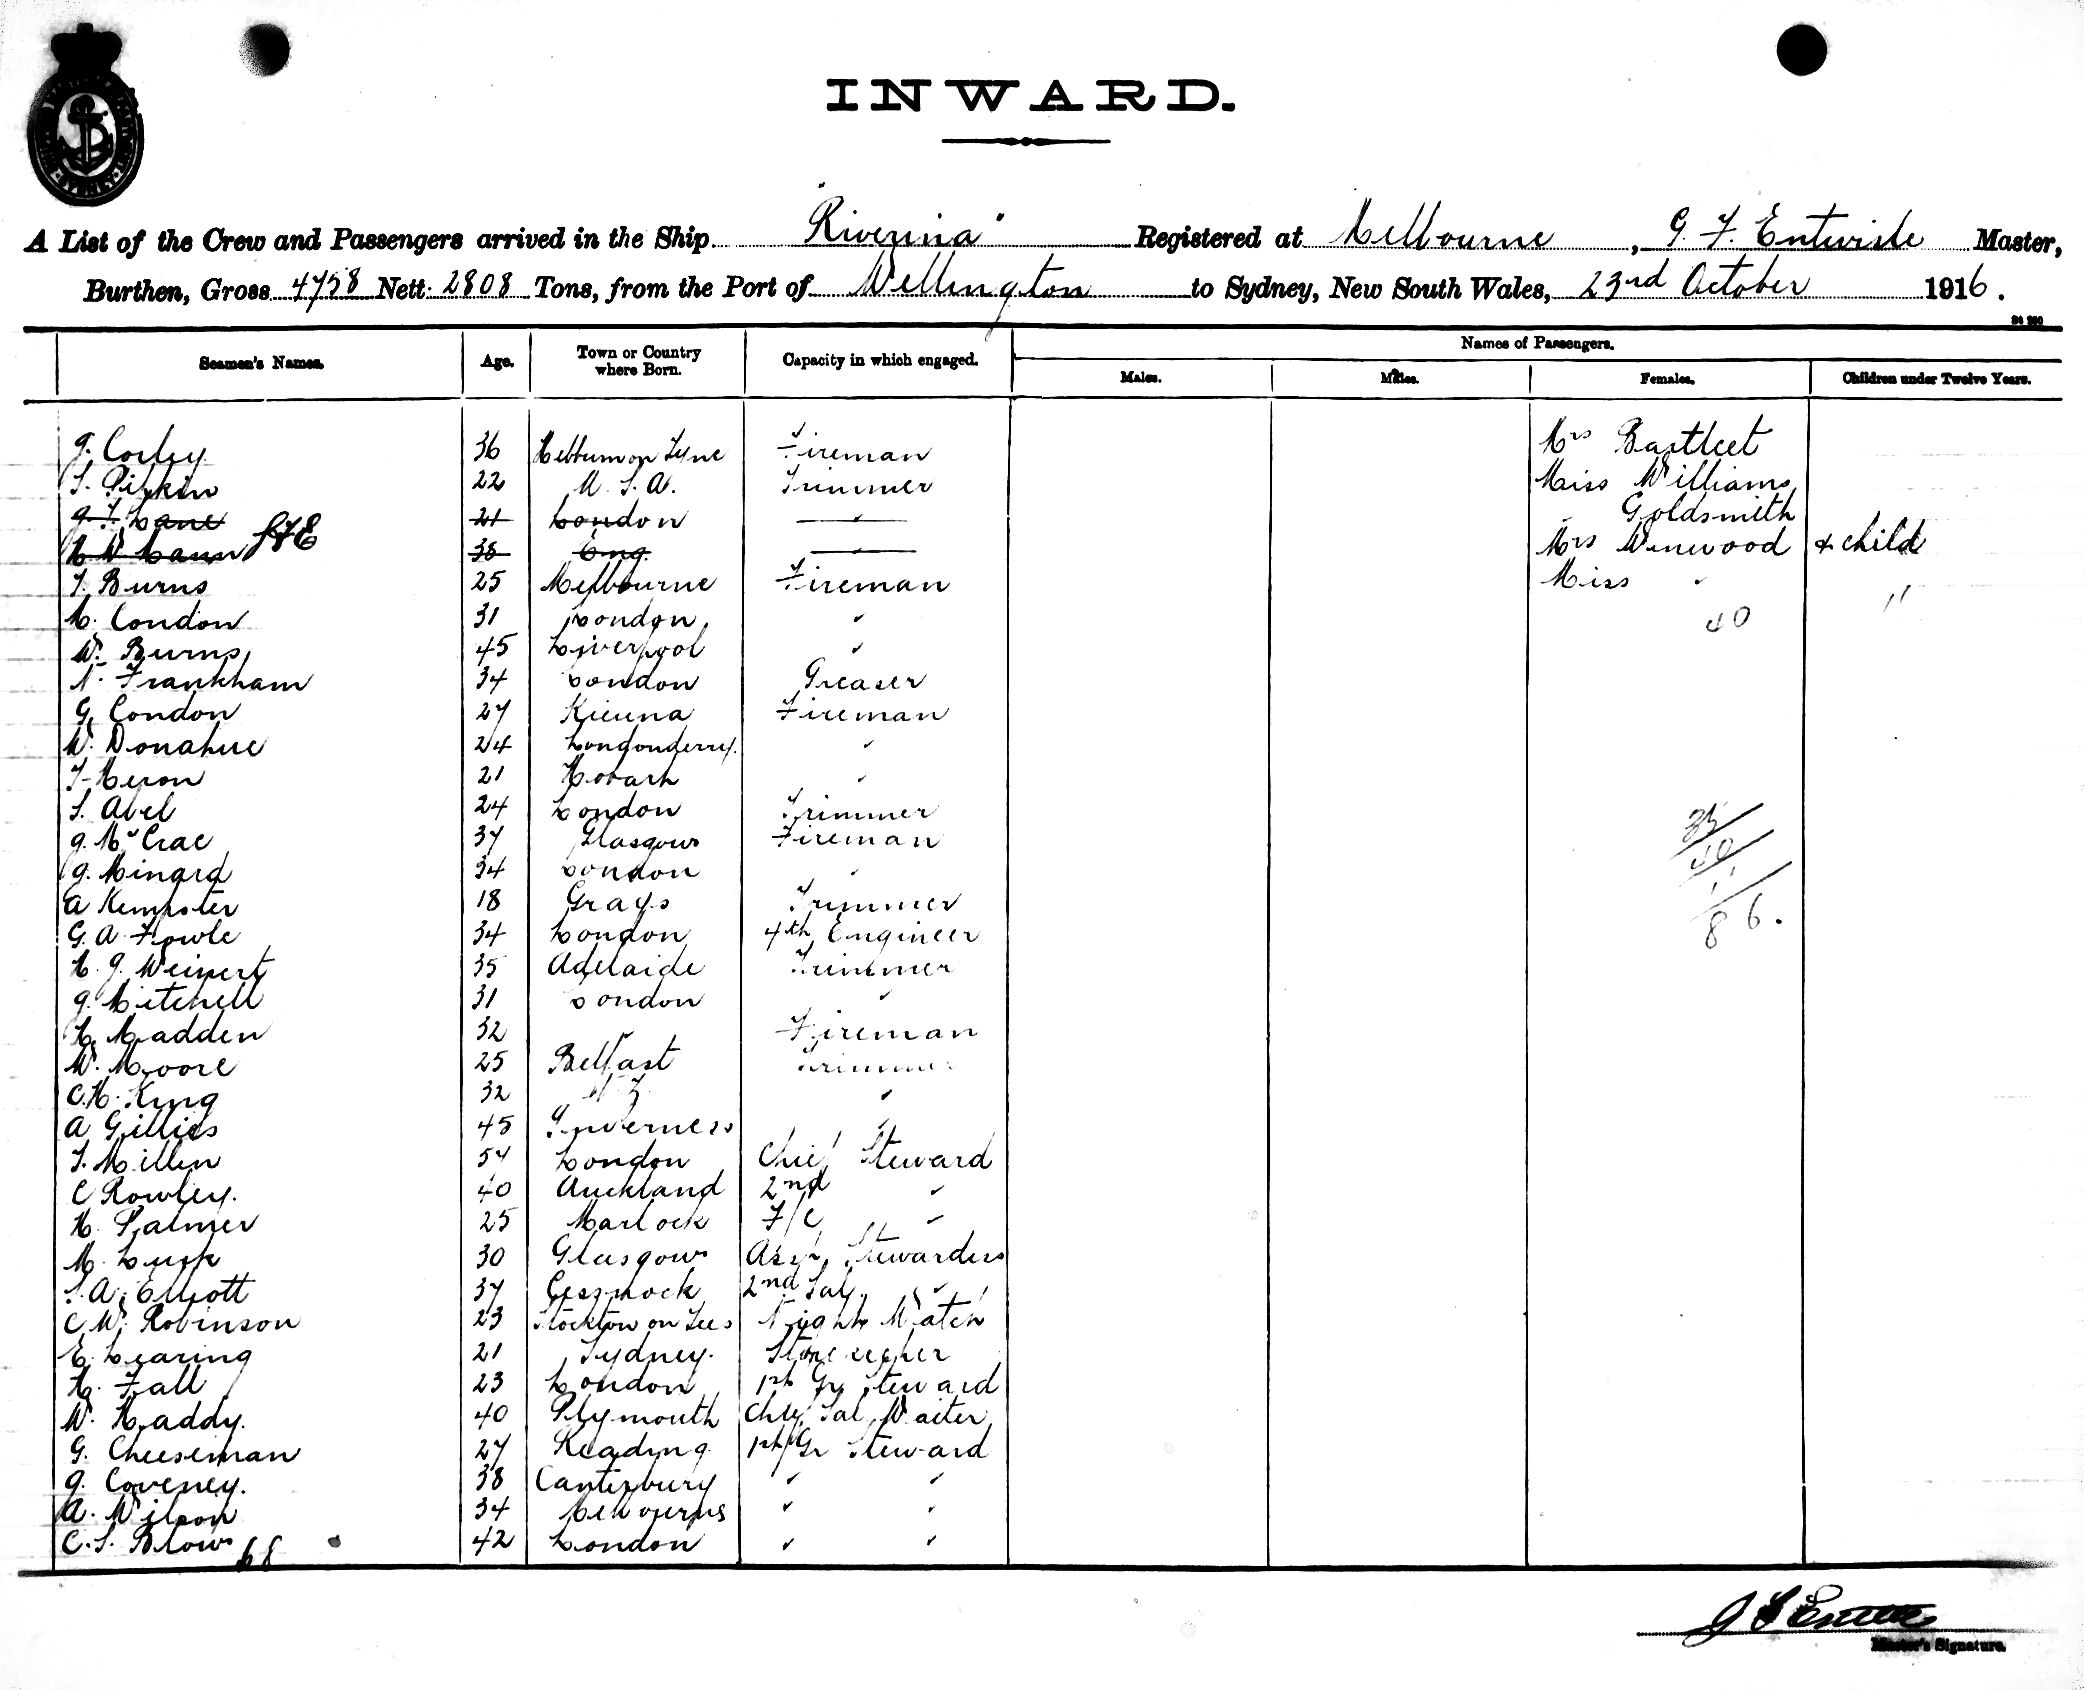 INWARD.
A List of the Crew and Passengers arrived in the Ship "Riverina" Registered at Melbourne, G. F. Entwisle Master,
Burthen, Gross 4758 Nett 2808 Tons, from the Port of Wellington to Sydney, New South Wales, 23rd October 1916.
Seamen's Names. Age. Town or Country where Born. Capacity in which engaged. Names of Passengers.
Males. Males. Females. Children under Twelve Years.
J. Corley 36 Hebburn on Tyne Fireman Mrs Bartleet
S. Pipkin 22 U.S.A. Trimmer Miss Williams
J. F. Lane 21 London " " Goldsmith
35 Eng. " Mrs Winwood & child
T. Burns 25 Melbourne Fireman Miss "
M. Condon 31 London " 40 11
W. Burns 45 Liverpool "
N. Frankham 34 London Greaser
G. Condon 27 Kiewa Fireman
W. Donahue 24 Londonderry. "
T. Heron 21 Hobart "
S. Abel 24 London Trimmer
J. McCrae 37 Glasgow Fireman
J. Minard 34 London "
A Kempster 18 Grays Trimmer
G. A. Fowle 34 London 4th Engineer
H. J. Weinert 35 Adelaide Trimmer
J. Mitchell 31 London "
H. Madden 32 " Fireman
W. Moore 25 Belfast Trimmer
C. H. King 32 N Z "
A Gillies 45 Inverness "
T. Millin 54 London Chief Steward
C Rowley. 40 Auckland 2nd "
H. Palmer 25 Matlock F/C "
M. Lusk 30 Glasgow Asst. Stewardess
S. A. Elliott 37 Cessnock 2nd Sal. "
C. W. Robinson 23 Stockton on Tees Night Watch
E. Learing 21 Sydney. Storekeeper
H. Fall 23 London 1st Gr Steward
W. Haddy. 40 Plymouth Chief Sal. Waiter
G. Cheeseman 27 Reading 1st Gr Steward
J. Coveney. 38 Canterbury " "
A. Wilson 34 Melbourne " "
C. S. Blow 42 London " "
68
35
40
11
86.
Master's Signature.